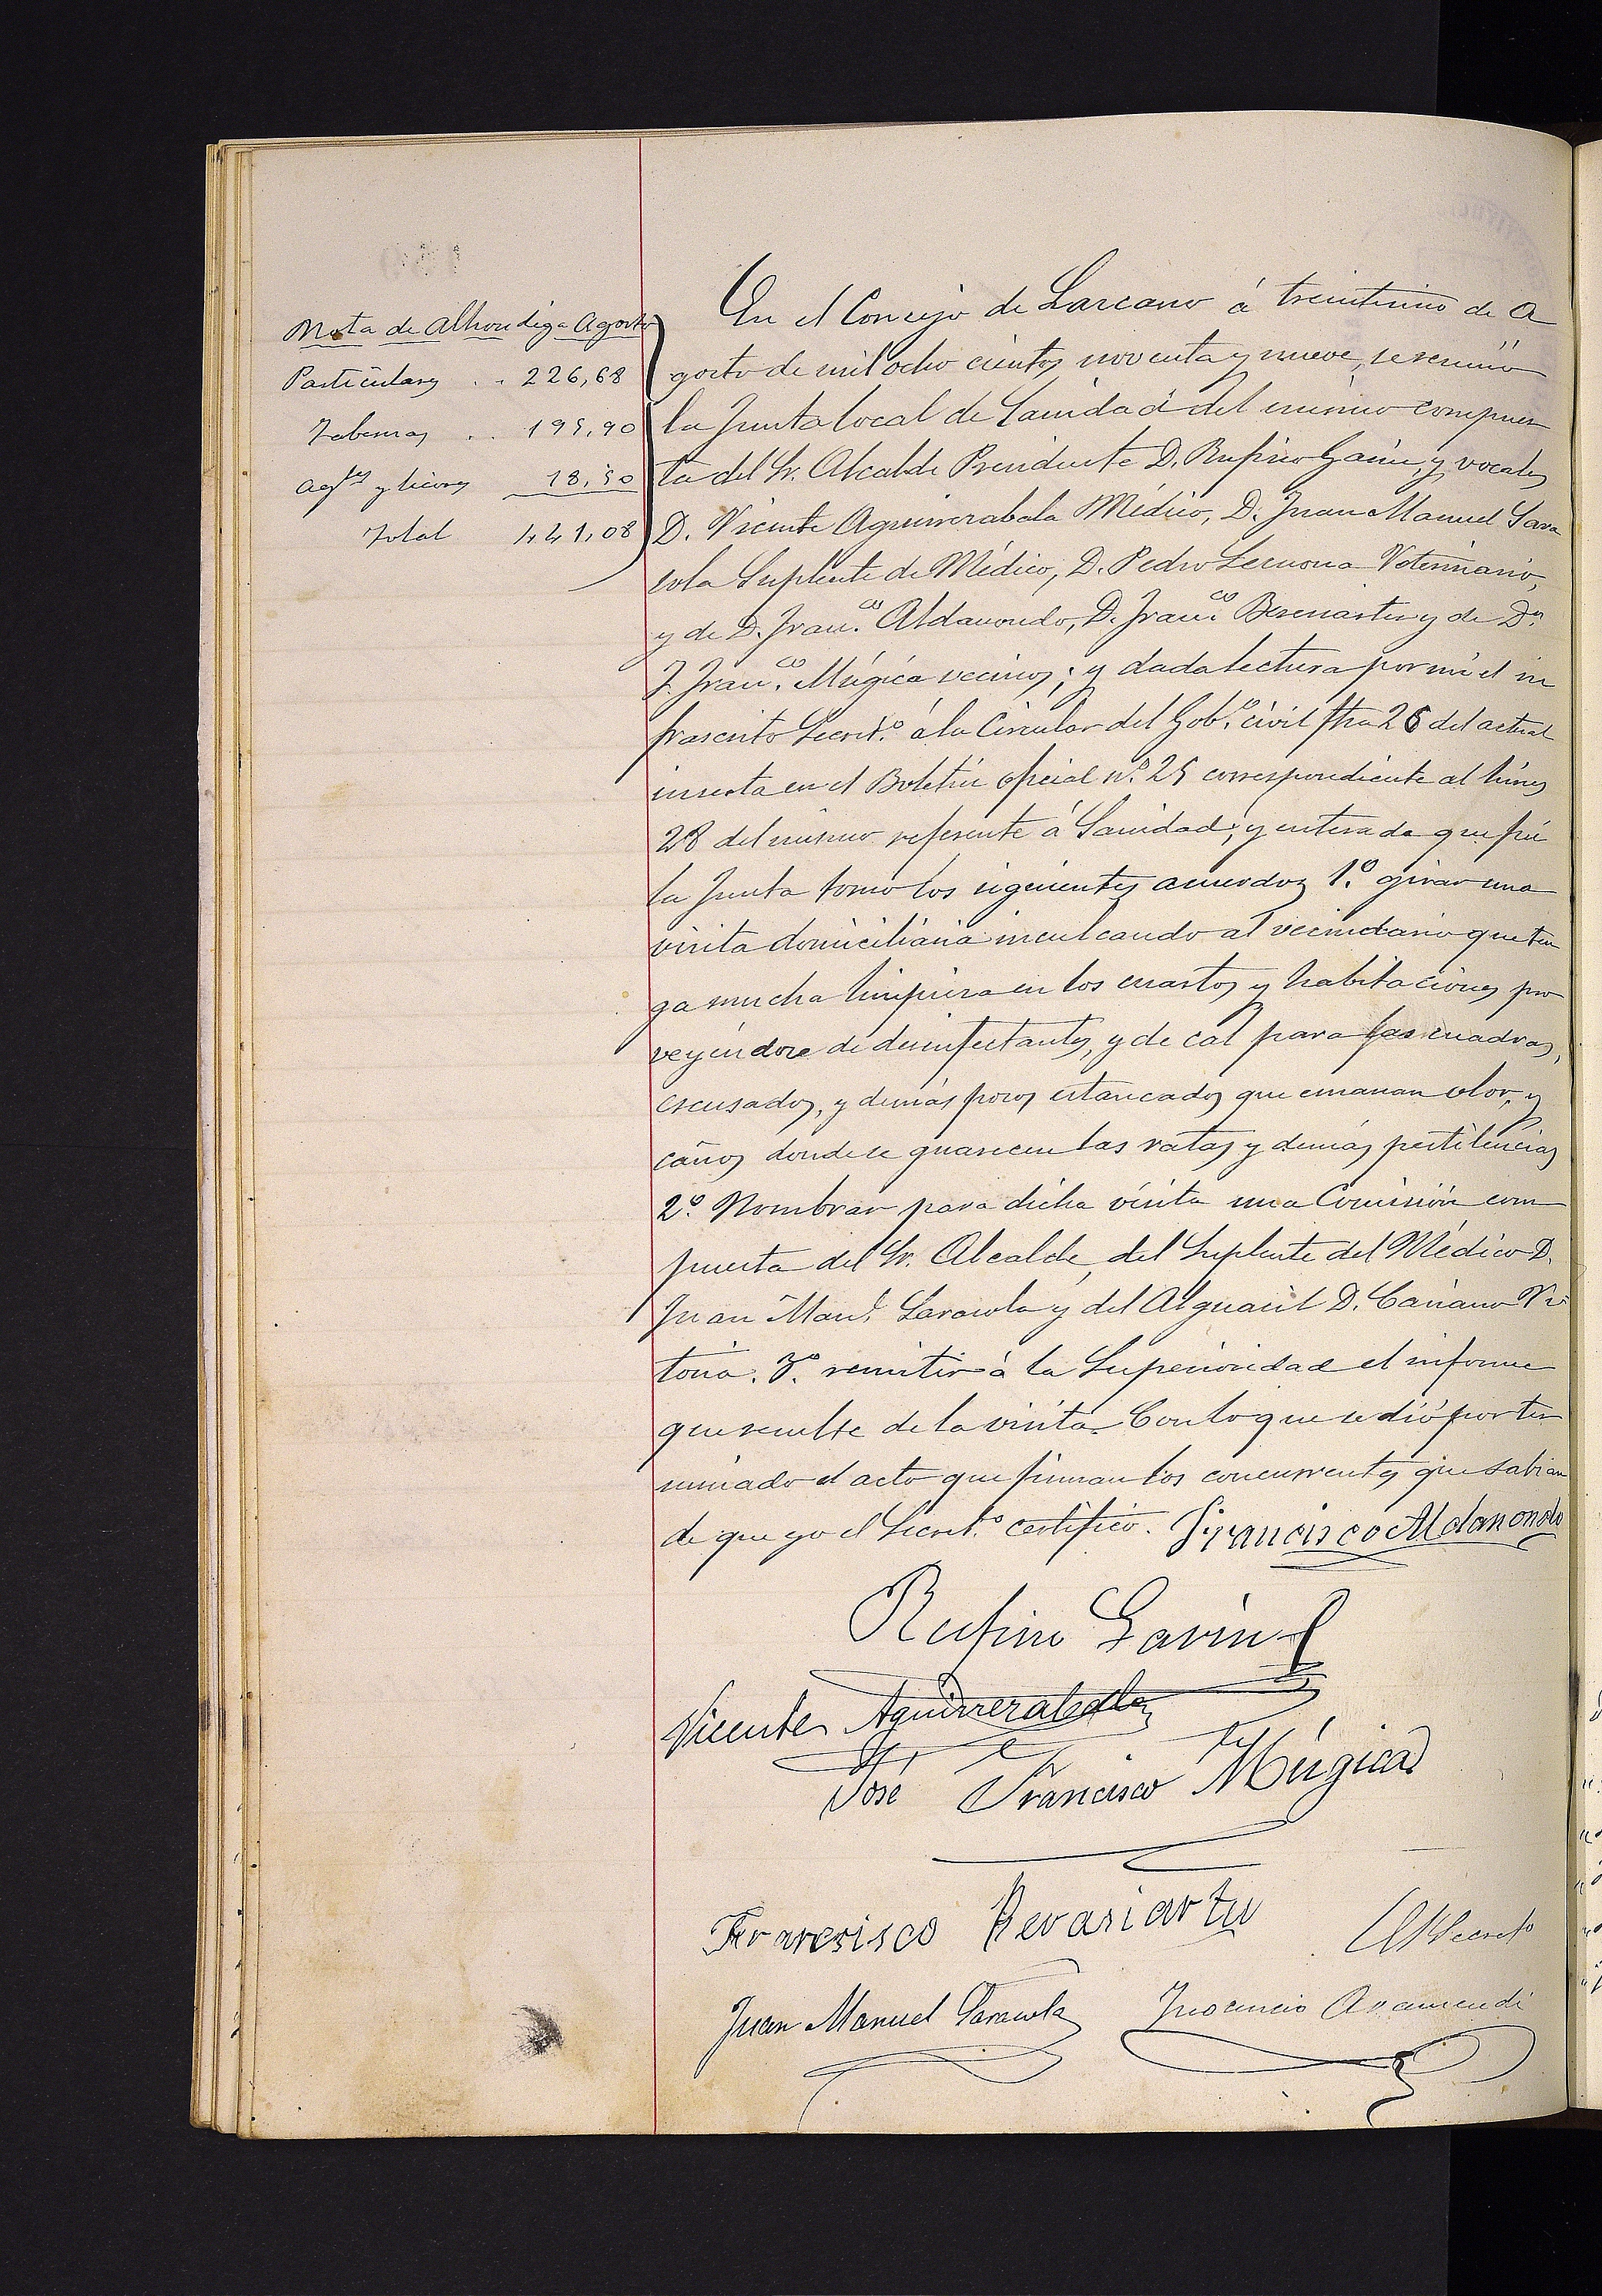 Nota de Alhondiga Agosto
Particulares . . 226,68
Tabernas . . 195,90
Agtes y licores 18,50
Total 441,08
En el Concejo de Lazcano á treintiuno de A
gosto de mil ocho cientos noventa y nueve, se reunió
la Junta local de Sanidad del mismo compues
ta del Sr. Alcalde Presidente D. Rufino Garin, y vocales
D. Vicente Aguirrezabala Médico, D. Juan Manuel Sara
sola Suplente de Médico, D. Pedro Lecuona Veterinario,
y de D. Franco. Aldanondo, D. Franco. y de Dn.
J. Franco. Múgica vecinos; y dada lectura por mi el in
frascrito Secreto. á la Circular del Gobo. civil fha 26 del actual
inserta en el Boletin oficial no. 25 correspondiente al lúnes
28 del mismo referente á Sanidad; y enterada que fué
la Junta tomo los siguientes acuerdos 1.o girar una
visita domiciliaria inculcando al vecindario que ten
ga mucha limpieza en los cuartos y habitaciones pro
veyéndose de desinfectantes, y de cal para las cuadras,
escusados, y demás pozos estancados que emanan olor, y
caños donde se guarecen las ratas y demás pestilencias
2.o Nombrar para dicha visita una Comisión com
puesta del Sr. Alcalde, del Suplente del Médico D.
Juan Manl. Sarasola y del Alguacil D. Vi
toria. 3.o remitir á la Superioridad el informe
que resulte de la visita. Con lo que se dió por ter
minado el acto que firman los concurrentes que sabian
de que yo el Secreto. certifico. Francisco Aldanondo
Rufino Garin
Vicente Aguirrezabala
José Francisco Múgica
Francisco
El Secreto
Juan Manuel Sarasola Inocencio Aramendi